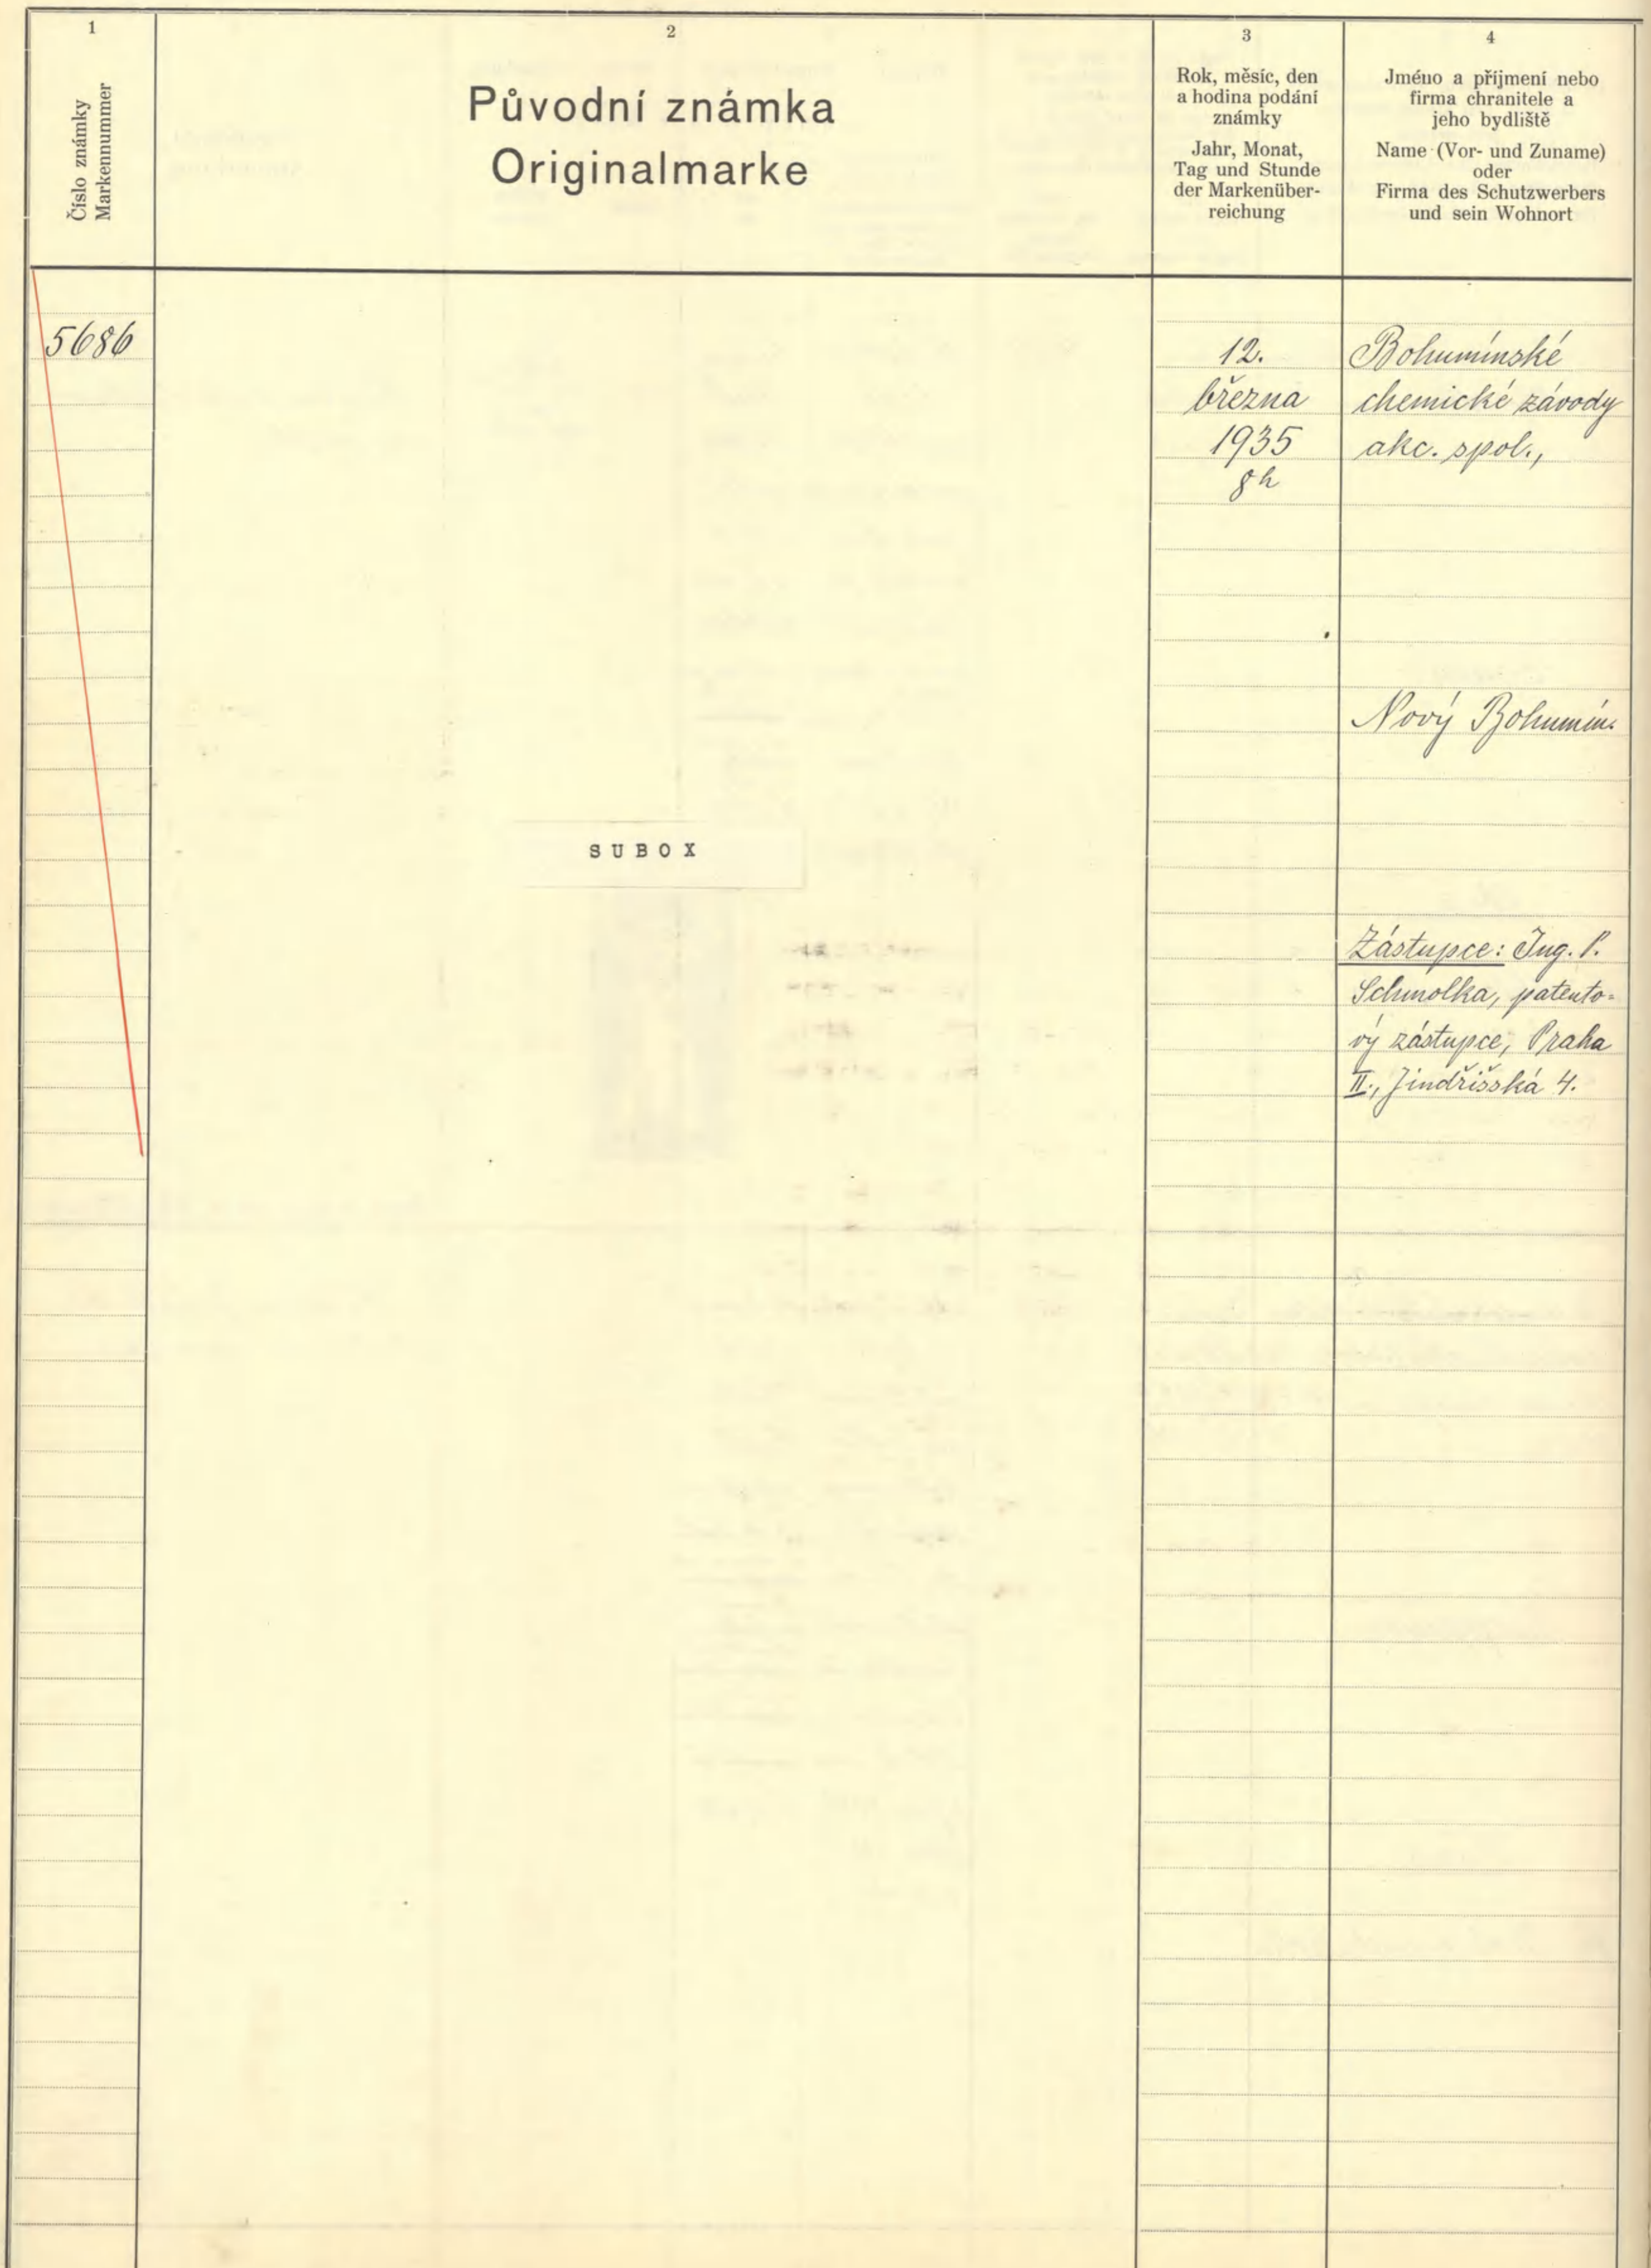 1
Číslo známky
Markennummer
2
Původní známka
Originalmarke
3
Rok, měsíc, den
a hodina podání
známky
Jahr, Monat,
Tag und Stunde
der Markenüber-
reichung
4
Jméno a příjmení nebo
firma chranitele a
jeho bydliště
Name (Vor- und Zuname)
oder
Firma des Schutzwerbers
und sein Wohnort
5686
SUBOX
12.
března
1935
8h
Bohumínské
chemické závody
akc. spol.,
Nový Bohumín.
Zástupce: Ing. P.
Schmolka, patento-
vý zástupce, Praha
II., Jindřišská 4.